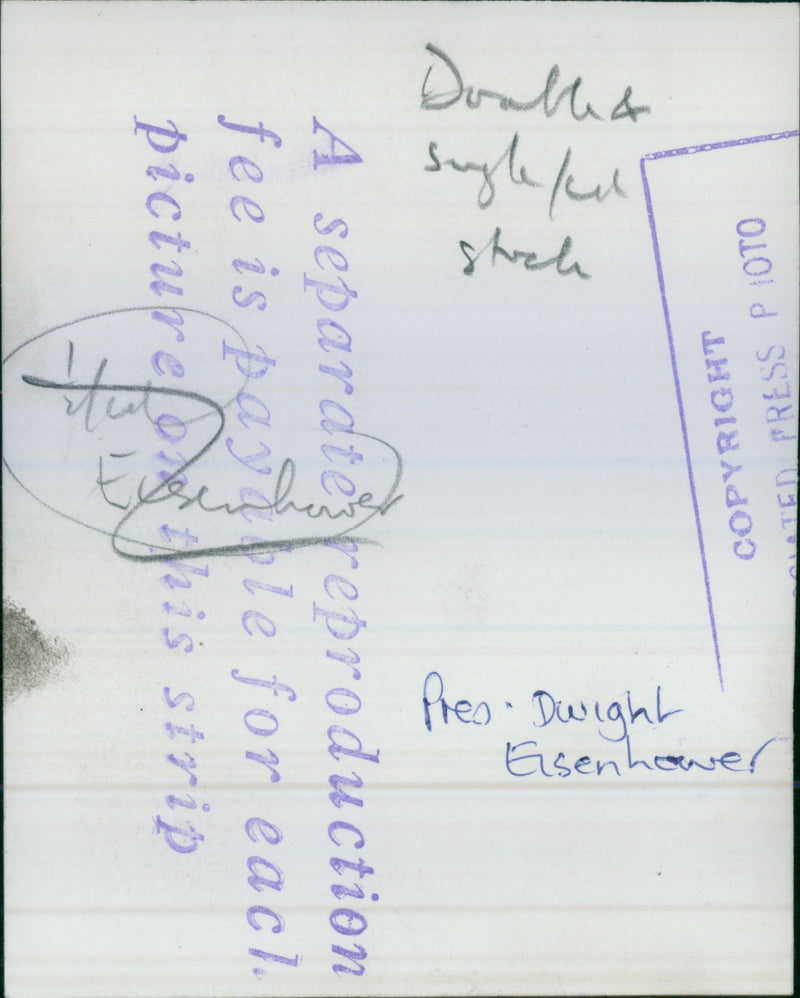 Double &
single/col
stock
A separate reproduction
fee is payable for each
picture on this strip
Eisenhower
COPYRIGHT
PRESS P IOTO
Pres. Dwight
Eisenhower